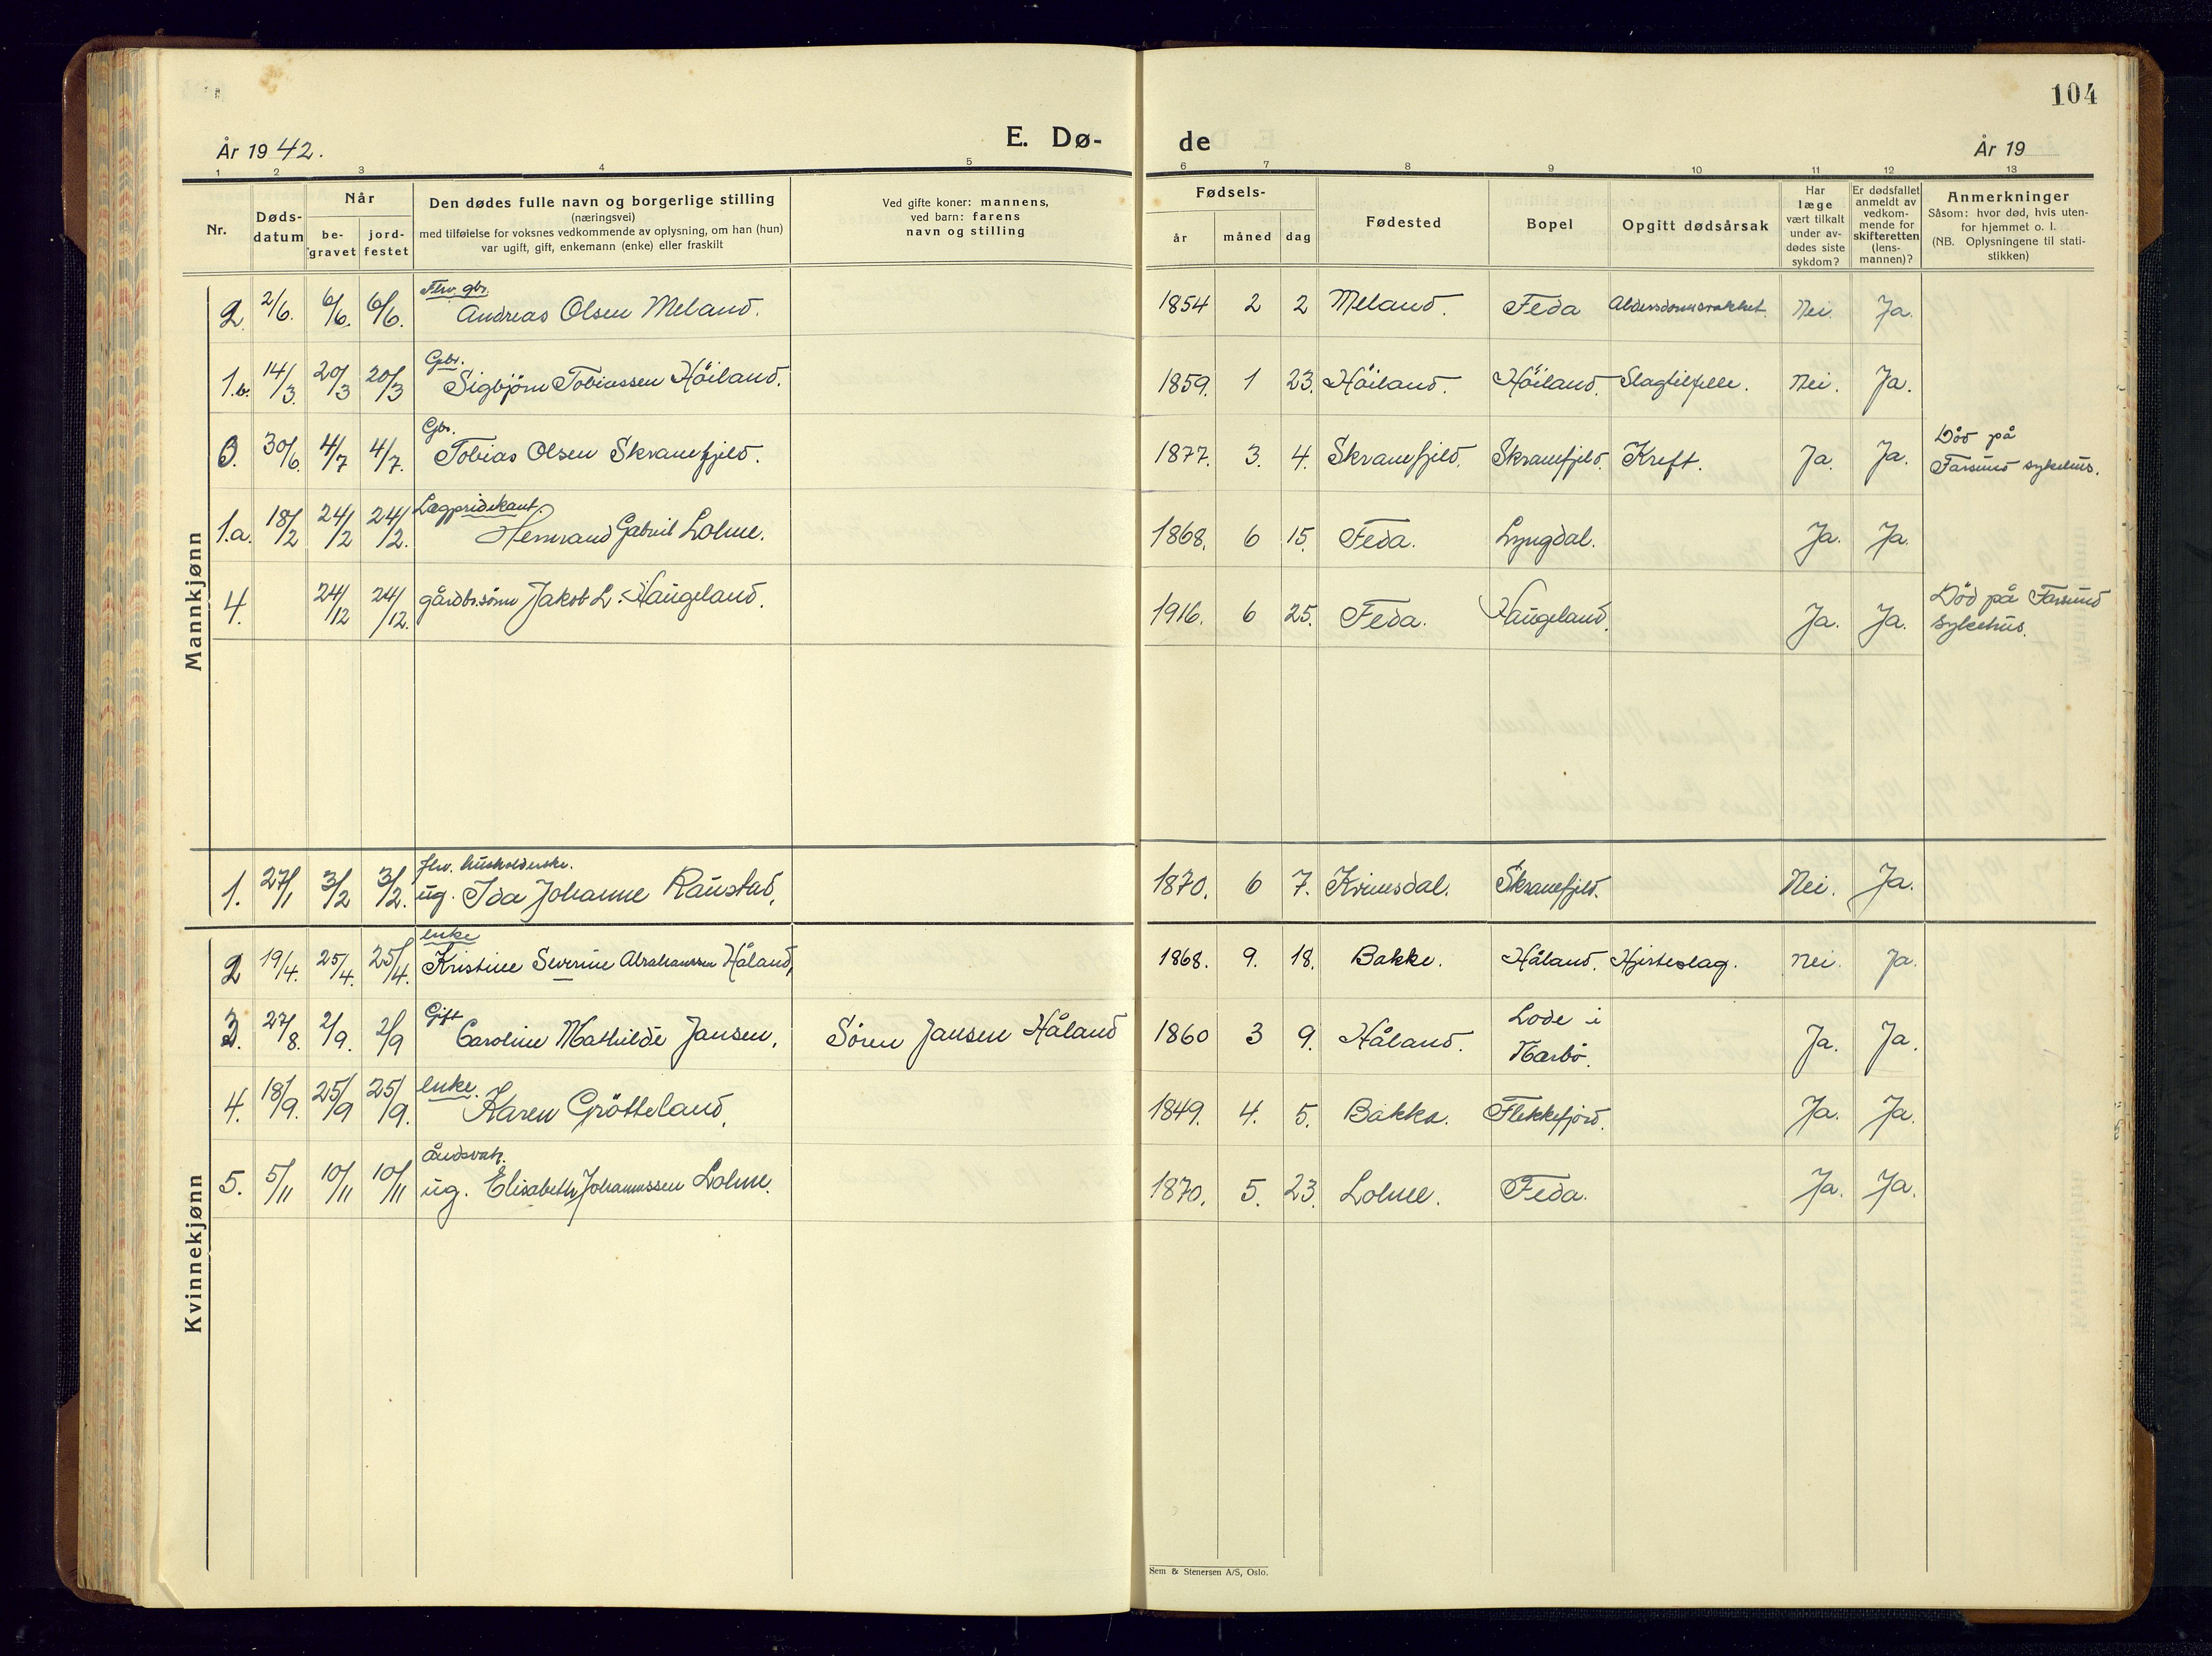 104
År 1942.
E. Dø-
de
År 19
1 2 3 4 5 6 7 8 9 10 11 12 13
Nr.
Døds-
datum
Når
be-
gravet
jord-
festet
Den dødes fulle navn og borgerlige stilling
(næringsvei)
med tilføielse for voksnes vedkommende av oplysning, om han (hun)
var ugift, gift, enkemann (enke) eller fraskilt
Ved gifte koner: mannens,
ved barn: farens
navn og stilling
Fødsels-
år måned dag
Fødested
Bopel
Opgitt dødsårsak
Har
læge
vært tilkalt
under av-
dødes siste
sykdom?
Er dødsfallet
anmeldt av
vedkom-
mende for
skifteretten
(lens-
mannen)?
Anmerkninger
Såsom: hvor død, hvis uten-
for hjemmet o. l.
(NB. Oplysningene til stati-
stikken)
Mannkjønn
Flv. gbr.
2. 2/6. 6/6. 6/6. Andreas Olsen Meland. 1854 2 2 Meland. Feda Alderdomsvakket. Nei. Ja.
Gbr.
1.b. 14/3. 20/3 20/3 Sigbjörn Tobiassen Höiland. 1859. 1 23. Höiland. Höiland. Slagtilfelle. Nei. Ja.
Gbr.
3. 30/6. 4/7 4/7. Tobias Olsen Skranefjeld. 1877. 3. 4. Skranefjeld. Skranefjeld. Kreft. Ja. Ja. Död på
Farsund sykehus.
Lægpridikant.
1.a. 18/2 24/2 24/2. Gabriel Lolme. 1868. 6 15. Feda. Lyngdal. Ja. Ja.
4. 24/12 24/12. gårdbr.sönn Jakob L. Haugeland. 1916. 6 25. Feda. Haugeland. Ja. Ja. Död på Farsund
sykehus.
Kvinnekjønn
flv. husholderske.
1. 27/1 3/2 3/2. ug. Ida Johanne Raustad. 1870. 6 7. Kvinesdal. Skranefjeld. Nei. Ja.
enke
2 19/4. 25/4. 25/4. Kristine Severine Abrahamssen Håland, 1868. 9. 18. Bakke. Håland. Hjerteslag. Nei. Ja.
Gift
3. 27/8. 2/9. 2/9 Caroline Mathilde Jansen, Sören Jansen Håland 1860 3 9. Håland. Lode i
Narbö. Ja. Ja.
enke.
4. 18/9. 25/9 25/9. Karen Grötteland. 1849. 4. 5. Bakke. Flekkefjord. Ja. Ja.
åndsvak.
5. 5/11 10/11 10/11 ug. Elisabeth Johannessen Lolme. 1870. 5. 23. Lolme. Feda. Ja. Ja.
Sem & Stenersen A/S, Oslo.